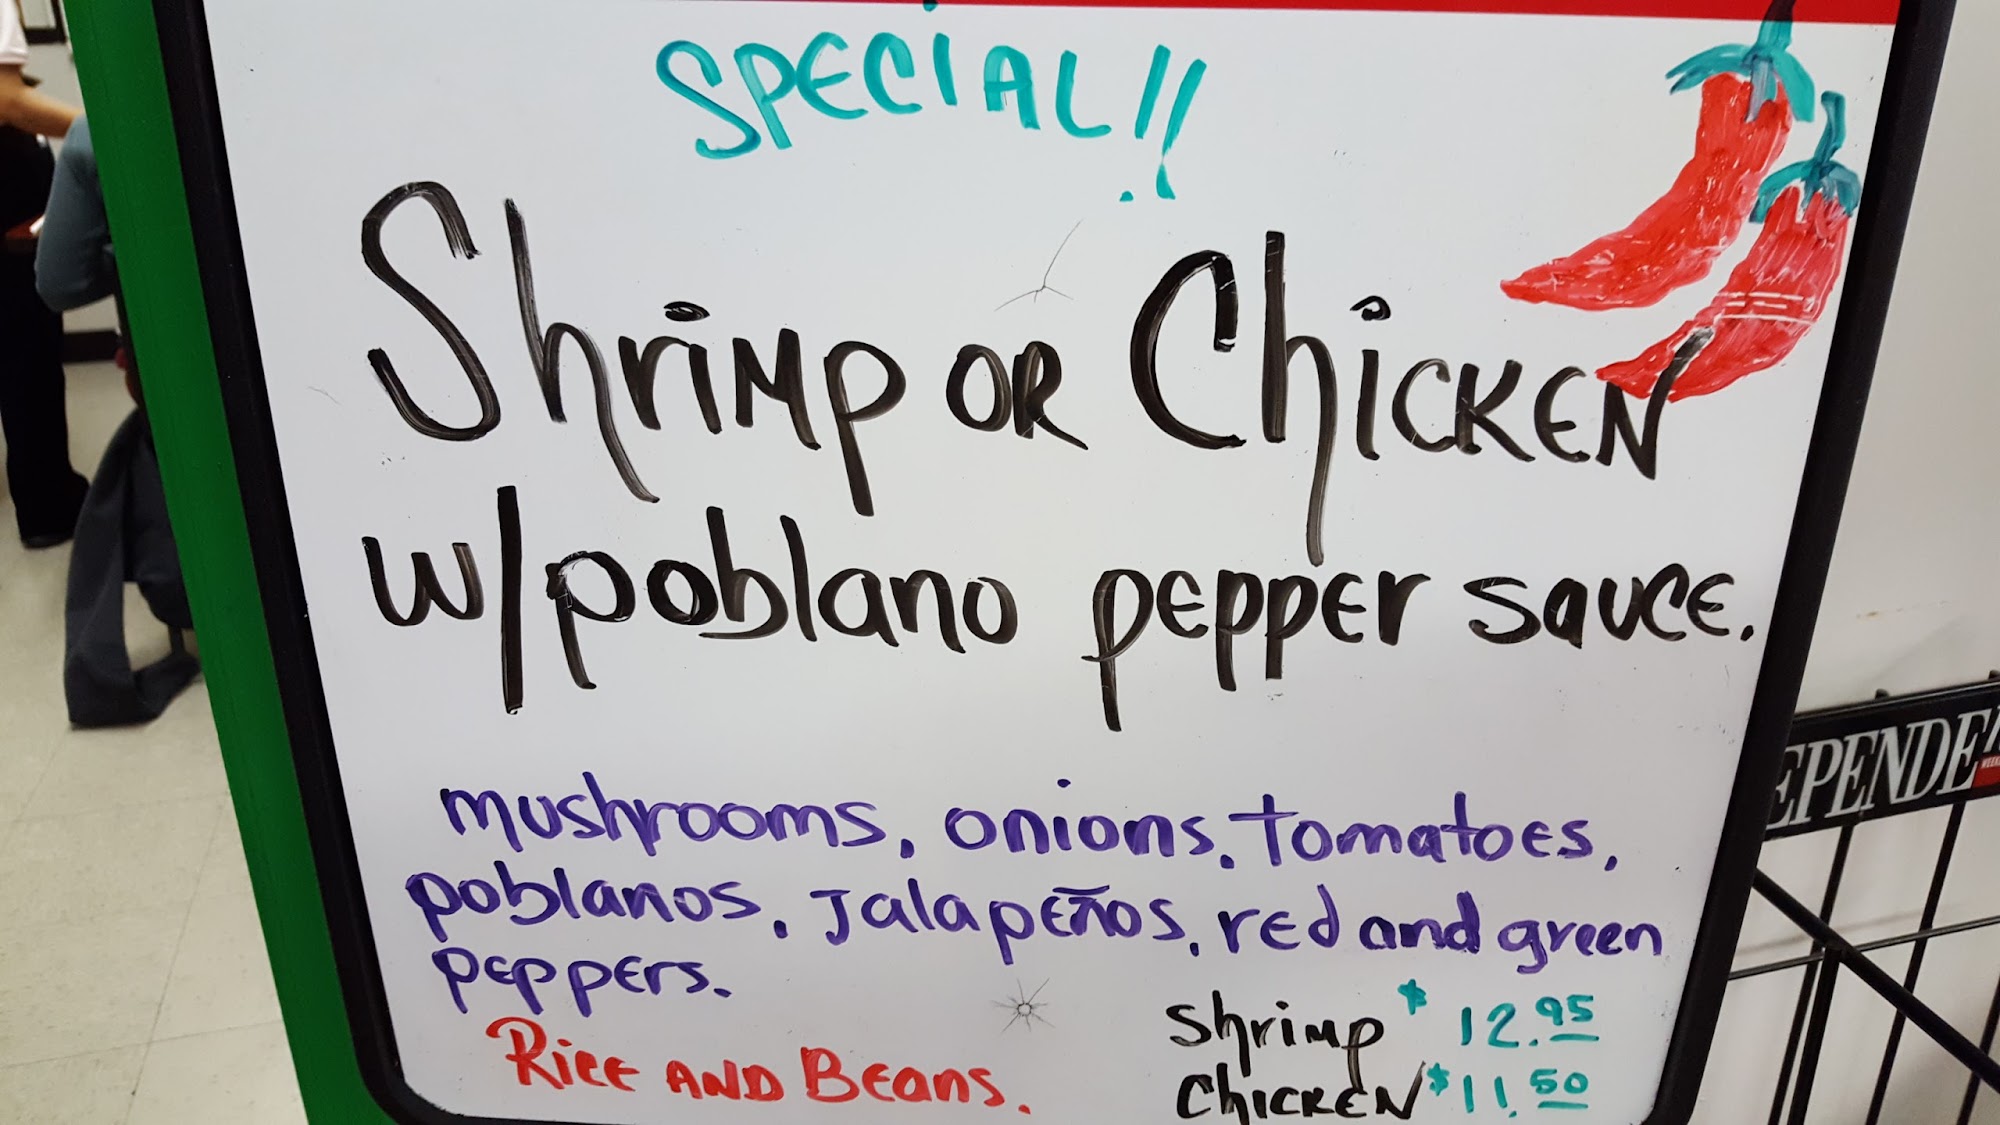 SPECIAL!!
Shrimp OR Chicken
w/poblano pepper sauce.
mushrooms, onions, tomatoes,
poblanos, Jalapeños, red and green
peppers.
Rice AND Beans.
Shrimp $12.95
Chicken $11.50
EPENDEN